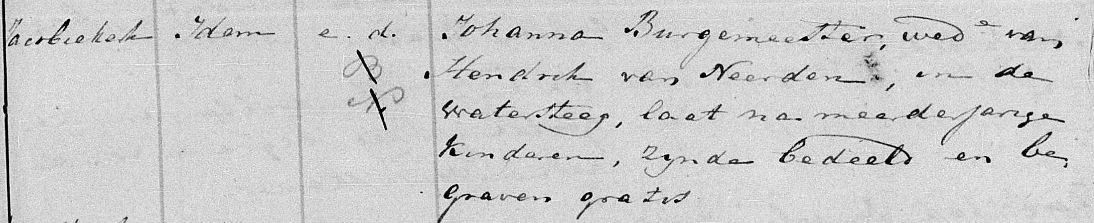 Jacobiekerk Idem e. d. Johanna Burgemeester, wede van
B Hendrik van Neerden, in de
N watersteeg, laat na meerderjarige
kinderen, zynde bedeeld en be,
graven gratis